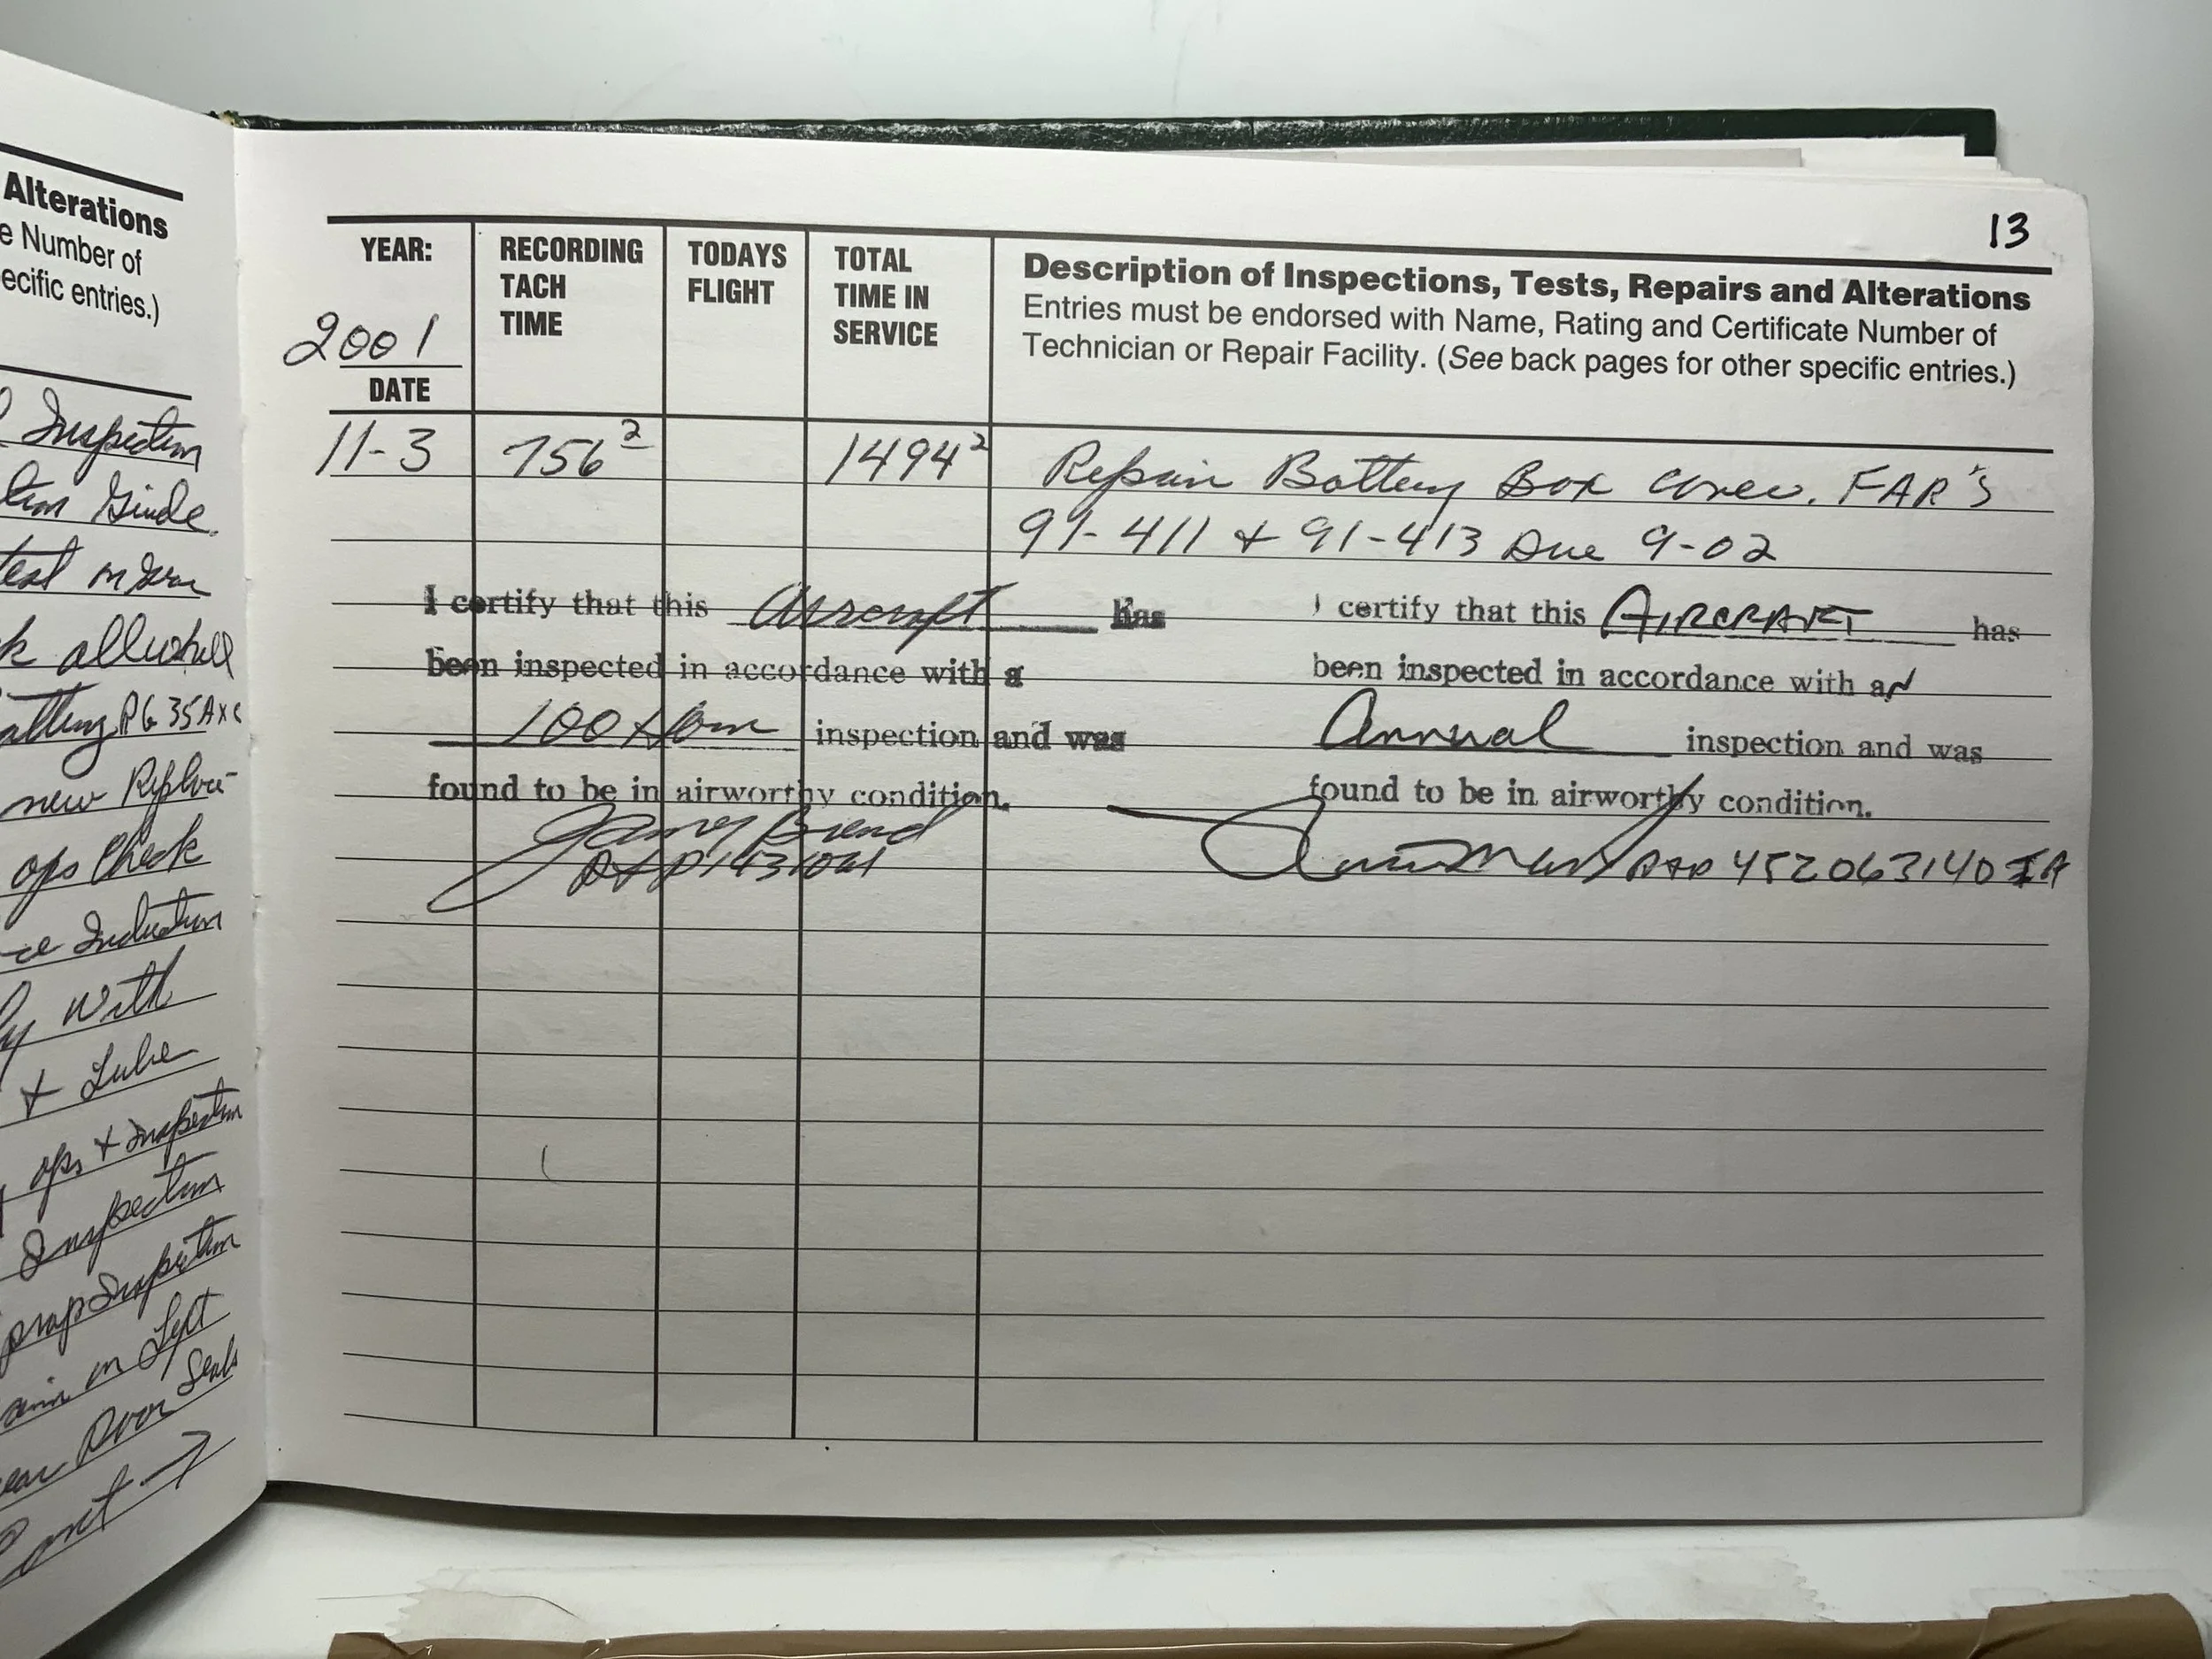 Alterations
e Number of
ecific entries.)
Inspection
Guide
test
k all
PG 35AXC
new
ops check
Induction
with
+ Lube
ops + Inspection
Inspection
prop Inspection
on Left
Door Seals
Cont →
13
YEAR:
2001
DATE
RECORDING
TACH
TIME
TODAYS
FLIGHT
TOTAL
TIME IN
SERVICE
Description of Inspections, Tests, Repairs and Alterations
Entries must be endorsed with Name, Rating and Certificate Number of
Technician or Repair Facility. (See back pages for other specific entries.)
11-3 756² 1494² Repair Battery Box cover. FAR's
91-411 + 91-413 Due 9-02
I certify that this Aircraft has
been inspected in accordance with a
100 Hour inspection and was
found to be in airworthy condition.
A&P
I certify that this AIRCRAFT has
been inspected in accordance with an
Annual inspection and was
found to be in airworthy condition.
A&P 452063140 IA